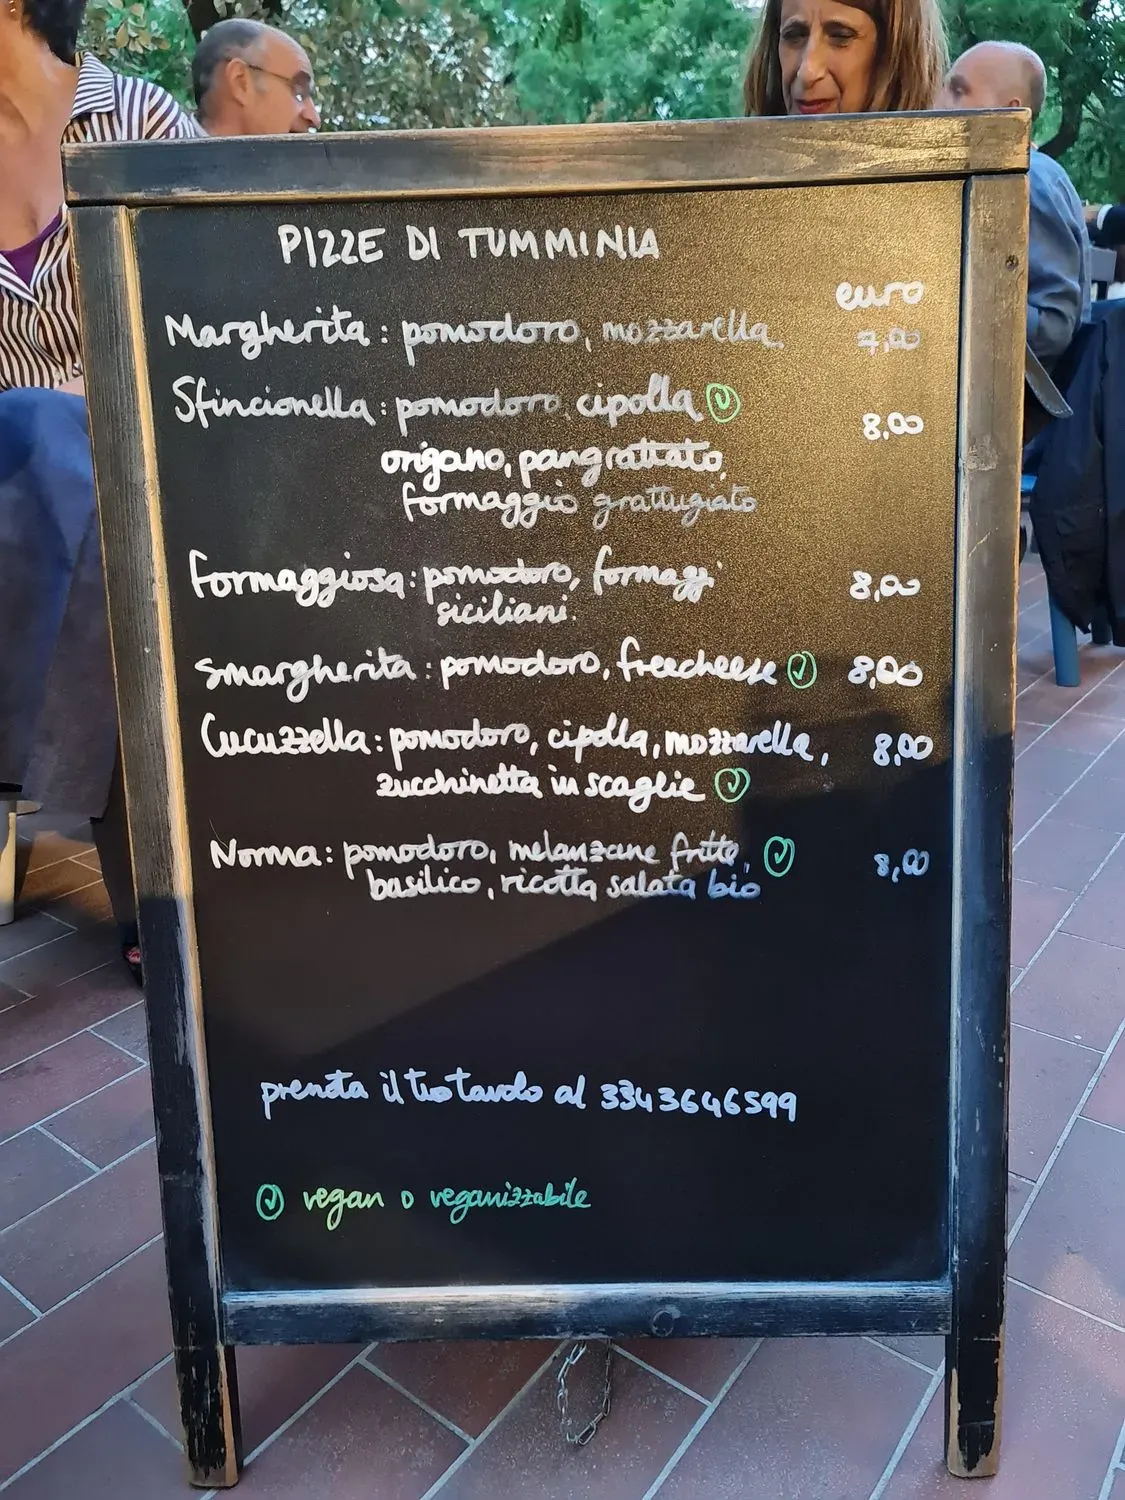 PIZZE DI TUMMINIA
euro
Margherita: pomodoro, mozzarella 7,00
Sfincionella: pomodoro, cipolla 8,00
origano, pangrattato,
formaggio grattugiato
Formaggiosa: pomodoro, formaggi 8,00
siciliani.
Smargherita: pomodoro, freecheese 8,00
Cucuzzella: pomodoro, cipolla, mozzarella, 8,00
zucchinetta in scaglie
Norma: pomodoro, melanzane fritte, 8,00
basilico, ricotta salata bio
prenota il tuo tavolo al 3343646599
vegan o veganizzabile